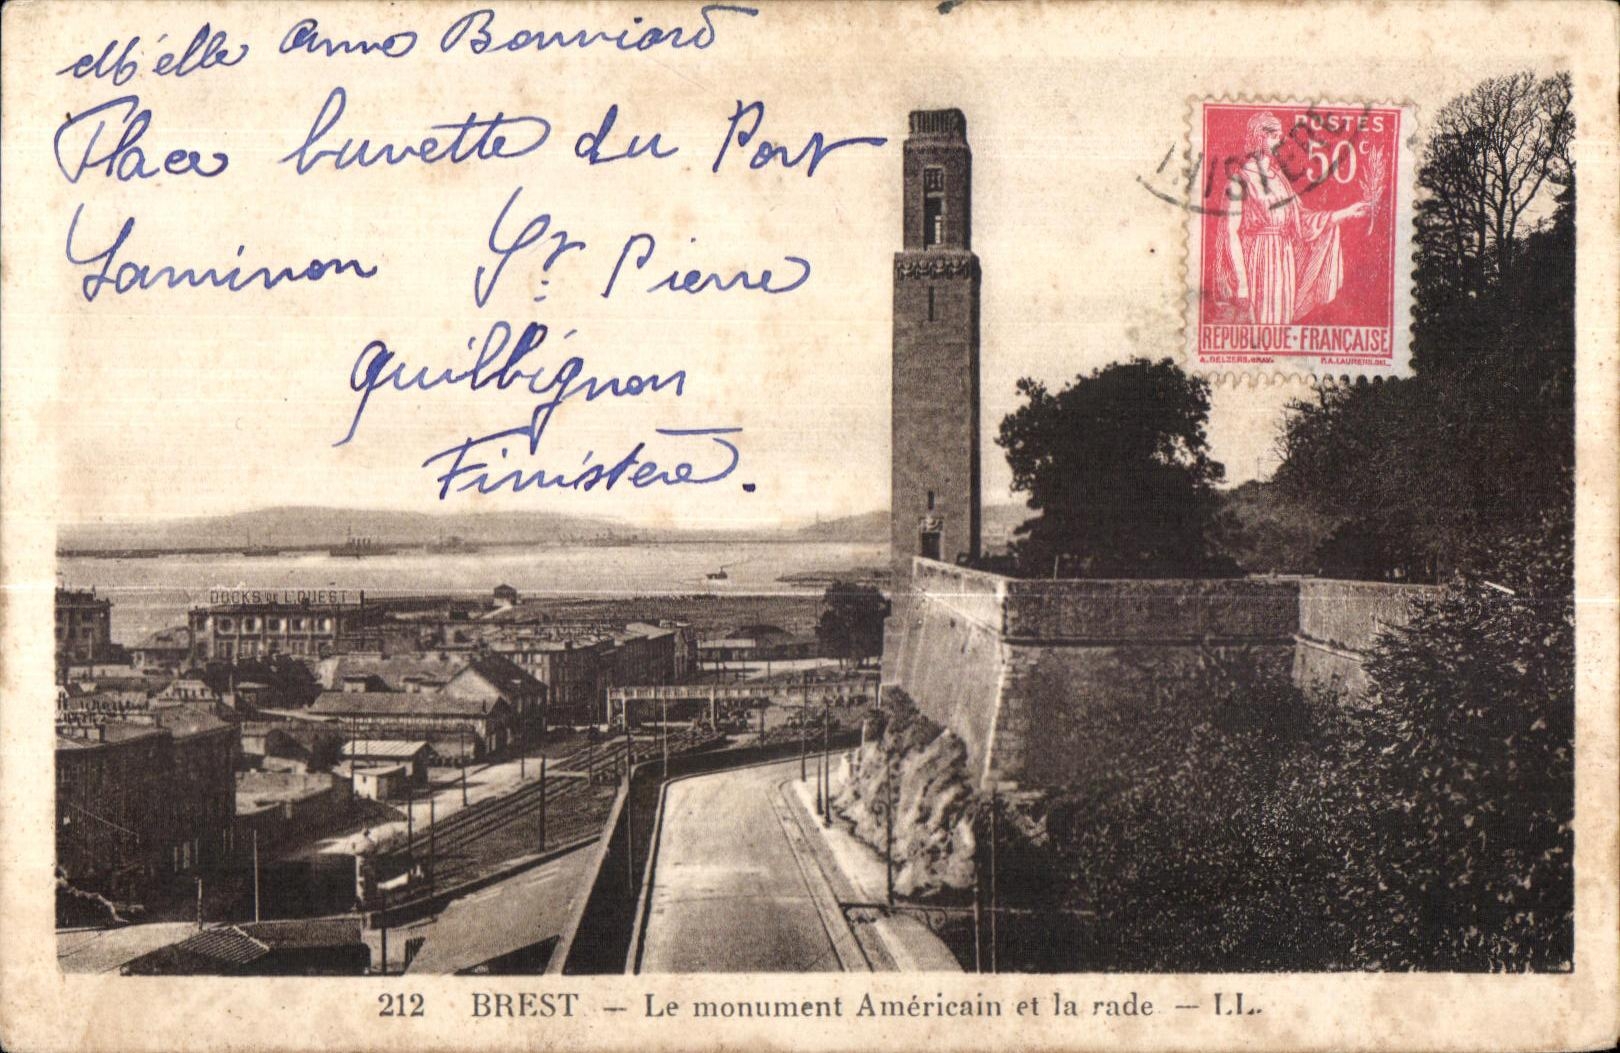 Melle Anna Bonniard
Place buvette du Port
Laninon St. Pierre
Quilbignon
Finistère.
POSTES
50c
RÉPUBLIQUE·FRANÇAISE
A. DELZERS. GRAV. P.A. LAURENS. DEL.
NISTÈRE
DOCKS DE L'OUEST
212 BREST — Le monument Américain et la rade — LL.